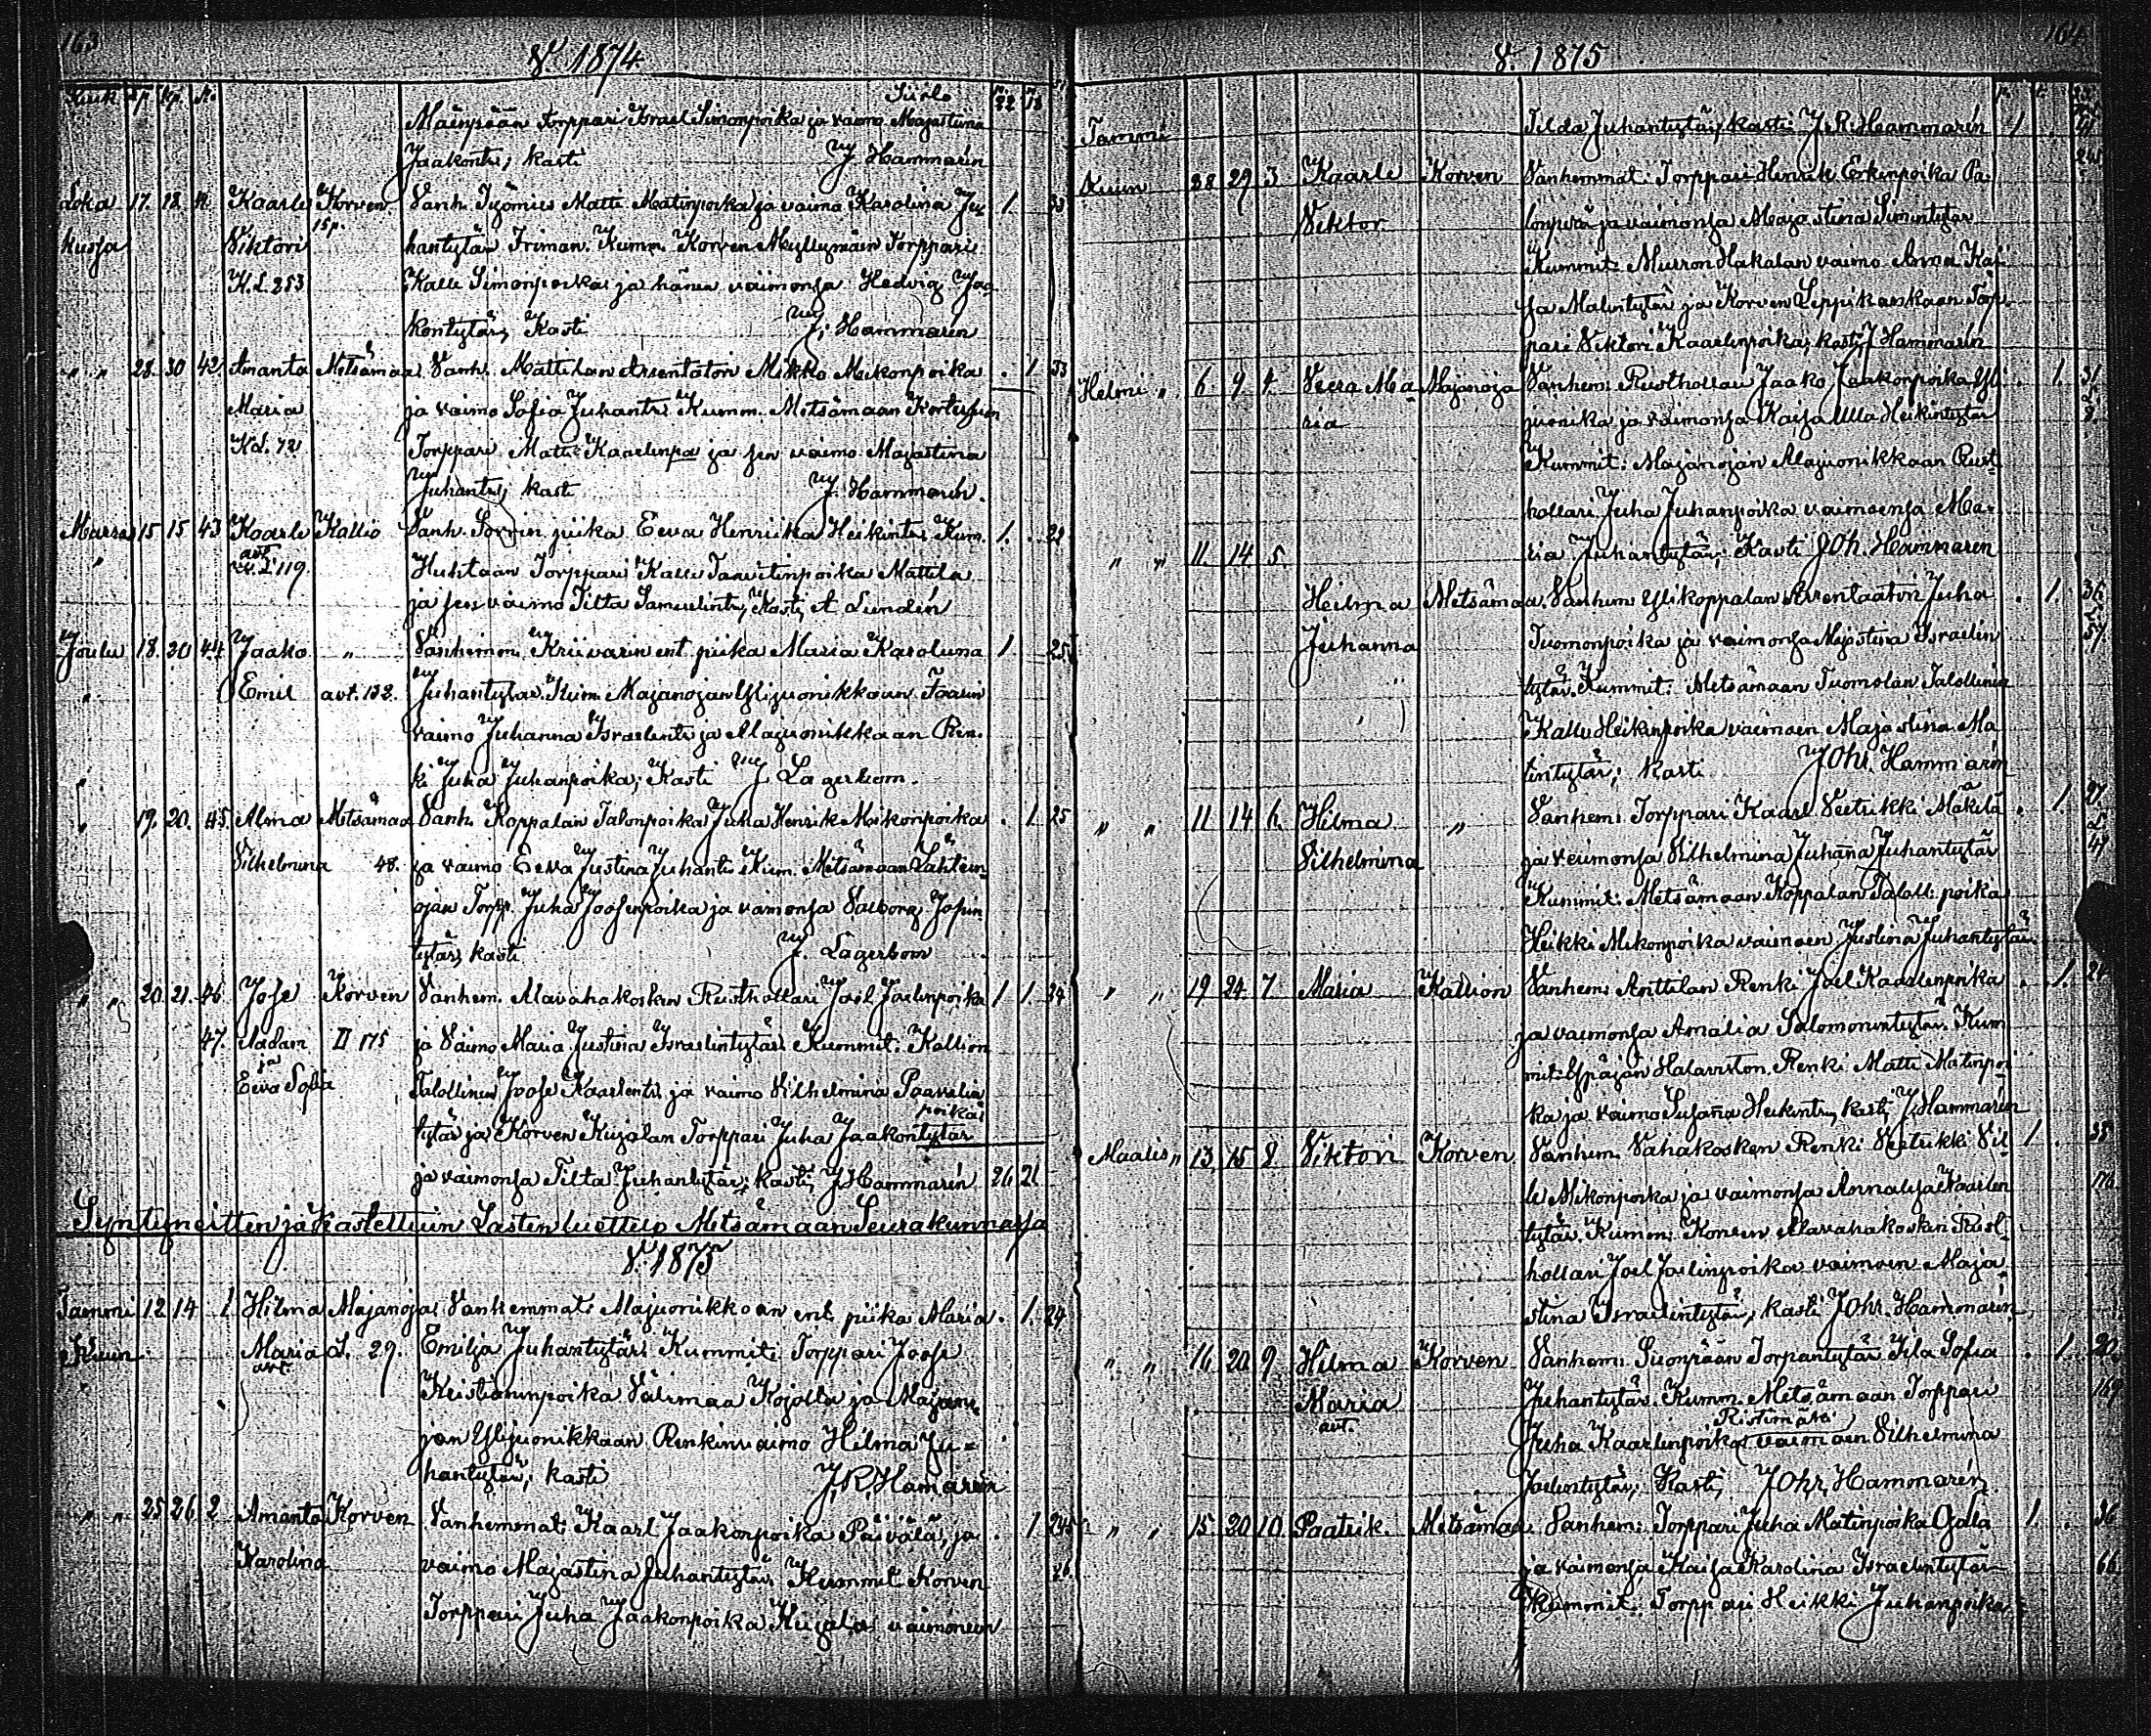 163
V. 1874
Siirto 22 18
Mäenpään Torppari Israel Simonpoika ja vaimo Majastina
Jaakontr, kasti J. Hammarén
Loka 17. 18. 41. Kaarle Korven Vanh. Työmies Matti Matinpoika ja vaimo Karolina Ju- 1. 33
kuussa Viktori 15p. hantytär Kumm. Korven Myllymäen Torppari
K.L. 253 Kalle Simonpoika ja hänen vaimonsa Hedvig Jaa
kontytär, Kasti J. Hammarén
" " 28. 30 42 Amanta Metsämaa Vanh. Mattilan Arentatori Mikko Mikonpoika . 1 33
Maria ja vaimo Sofia Juhantr Kumm. Metsämaan
K.L. 72 Torppari Matti Kaarlenpa ja sen vaimo Majastina
Juhantr, kasti J. Hammarén.
Marras 15 15 43 Kaarle Kallio Vanh. Sorrin piika Eeva Henriika Heikintr, Kum. 1. . 22
" avt. L 119. Huhtaan Torppari Kalle Taavetinpoika Mattila
ja sen vaimo Tilta Samuelintr, Kasti, A. Lundén
Joulu 18. 20 44. Jaako " Vanhemm. Kriivarin ent. piika Maria Karoluna 1. 25.
" Emil avt. 132. Juhantytär. Kum. Majanojan Ylijuonikkaan
vaimo Juhanna Israelintr ja Alajuonikkaan Ren-
" ki Juha Juhanpoika; Kasti J Lagerbom.
" 19. 20. 45. Alma Metsämaa Vanh. Koppalan Talonpoika Juha Henrik Mikonpoika . 1 25
Vilhelmina 48. ja vaimo Eeva Justina Juhantr Kum. Metsämaan Lähteen-
ojan Torp. Juha Joosenpoika ja vaimonsa Valborg
tytär, kasti J. Lagerbom
" " 20. 21. 46 Jose Korven Vanhem. Alavahakosken Rusthollari Joel Joelinpoika 1 1. 34
47. Aadam II 175 ja Vaimo Maria Justina Israelintytär Kummit: Kallion
ja
Eeva Sofia Talollinen Joose Kaarlentr ja vaimo Vilhelmina Paavalin
poika
tytär ja Korven Kujalan Torppari Juha Jaakontytär
ja vaimonsa Tilta Juhantytär, kasti, J. Hammarén 26 21
Syntyneitten ja Kastettuin Lasten luettelo Metsämaan Seurakunnassa
V. 1875
Tammi 12 14 1. Hilma Majanoja Vanhemmat: Majuonikkoan ent. piika Maria . 1. 24
Kuun Maria L. 29. Emilja Juhantytär Kummit: Torppari Joose
avt.
Kristianinpoika Välimaa Kojolta ja Majano-
jan Ylijuonikkaan Renkinvaimo Hilma Ju-
hantytär, kasti J. R. Hamarén
" " 25 26 2. Amanta Korven Vanhemmat: Kaarl Jaakonpoika Päivälä, ja . 1 245
Karolina vaimo Majastina Juhantytär Kummit Korven 26.
Torppari Juha Jaakonpoika Kujala vaimoneen
164
V. 1875
Tammi Tilda Juhantytär, kasti J. R. Hammarén 1 .
Kuun 28 29 3 Kaarle Korven Vanhemmat: Torppari Henrik Erkinpoika Pa-
Viktor. ja vaimonsa Maja stina Simintytär
Kummit: Murron Hakalan vaimo Anna Kai-
sa Malintytär ja Korven Leppikaskaan Torp-
pari Viktori Kaarlinpoika, kasti, J Hammarén
Helmi " 6. 9. 4. Veera Ma- Majanoja Vanhem: Rusthollari Jaako Jaakonpoika Yli- . 1. 31
ria juonika ja vaimonsa Kaisa Ulla Heikintytär 8.
Kummit: Majanojan Alajuonikkaan Rust-
hollari Juha Juhanpoika vaimoensa Ma-
" " 11. 14. 5. ria Juhantytär, Kasti JOh. Hammarén
Heilma Metsämaa Vanhem Ylikoppalan Arrentaatori Juha . 1. 36
Juhanna Tuomonpoika ja vaimonsa Majastina Israelin 57.
" tytär. Kummit: Metsämaan Tuomolan Talollinen
Kalle Heikinpoika vaimoen Maja stina Ma-
tintytär; kasti JOhr. Hammarén
" " 11 14 6. Hilma " Vanhem: Torppari Kaarl Vetrikki Mäkilä . 1. 27.
Vilhelmina ja vaimonsa Vilhelmina Juhana Juhantytär 47
Kummit: Metsämaan Koppalan Taloll. poika
Heikki Mikonpoika vaimoen Justina Juhantytär
" " 19 24. 7 Maria Kallion Vanhem: Anttilan Renki Joel Kaarlenpoika . 1. 24
ja vaimonsa Amalia Salomonintytär. Kum
mit: Ypäjän Renki Matti Matinpoi-
ka ja vaimo Susana Heikintr, kasti J Hammarén
Maalis " 13. 15 8 Viktori Korven Vanhem: Vahakosken Renki Vil- 1 . 35
le Mikonpoika ja vaimonsa Annaliisa Kaarlen 178.
tytär. Kumm: Korven Alavahakosken Rust-
hollari Joel Joelinpoika vaimoen Maja-
stina Israelintytär, kasti JOhr. Hammarén
" " 16 20 9. Hilma Korven Vanhem: Suonpään Torpantytär Sofia . 1. 20.
Maria Juhantytär. Kumm. Metsämaan Torppari 169
avt. Ristimäki
Juha Kaarlinpoika vaimoen Vilhelmina
Joelintytär, Kasti, JOhr. Hammarén
" " 15 20 10. Paatrik. Metsämaa Vanhem: Torppari Juha Matinpoika Ojala 1. . 36
ja vaimonsa Kaisa Karolina Israelintytär 66
Kummit: Torppari Heikki Juhanpoika